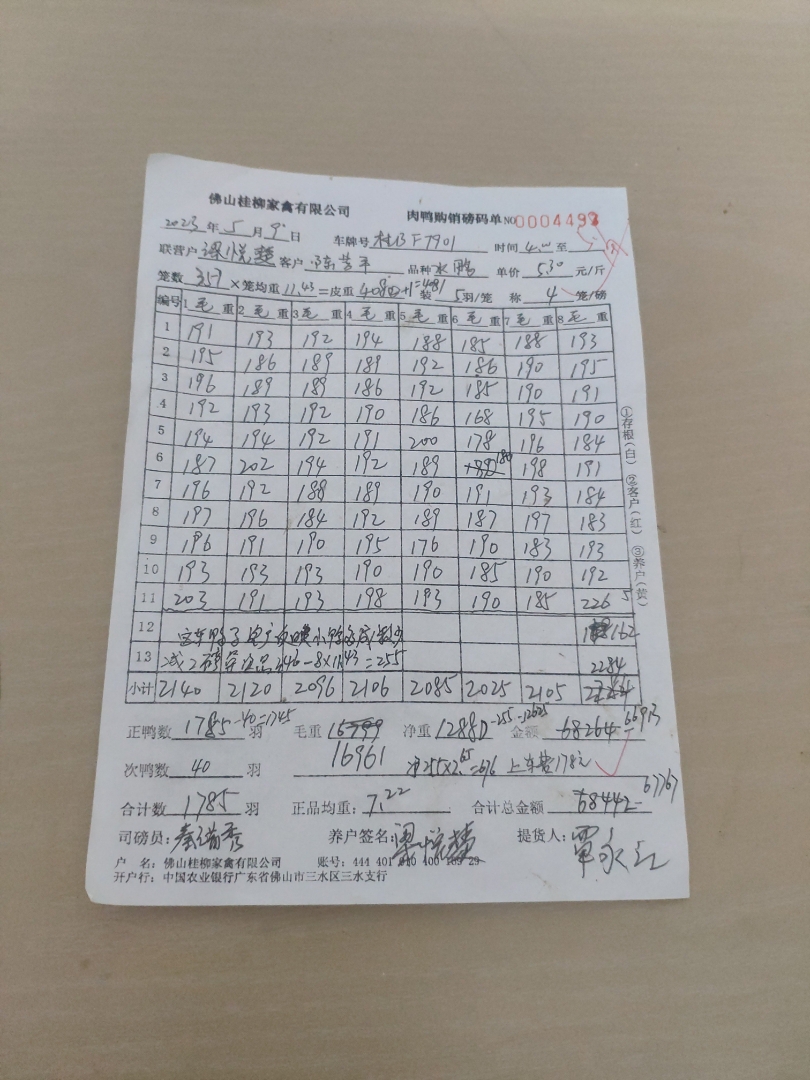 佛山桂柳家禽有限公司 肉鸭购销磅码单 NO 0004493
2023年5月9日 车牌号 桂 F7901 时间 4.00 至
联营户 梁悦楚 客户 陈 平 品种 水鸭 单价 5.30 元/斤
笼数 357 ×笼均重 11.43 =皮重 4080 +1=4081 装 5 羽/笼 称 4 笼/磅
编号 1 毛 重 2 毛 重 3 毛 重 4 毛 重 5 毛 重 6 毛 重 7 毛 重 8 毛 重
1 191 193 192 194 188 185 188 193
2 195 186 189 189 192 186 190 195
3 196 189 189 186 192 185 190 191
4 192 193 192 190 186 168 195 190
5 194 194 192 191 200 178 196 184
6 187 202 194 192 189 180 198 191
7 196 192 188 189 190 191 193 184
8 197 196 184 192 189 187 197 183
9 196 191 190 195 176 190 183 193
10 193 193 193 190 190 185 190 192
11 203 191 193 198 193 190 185 226 5
12 162
13 346-8×11.43=255 2284
小计 2140 2120 2096 2106 2085 2025 2105 2284
①存根(白) ②客户(红) ③养户(黄)
正鸭数 1785-40=1745 羽 毛重 16799 净重 12880-255=12625 金额 68264 66913
次鸭数 40 羽 16961 净255×2.65=676 上车费178元
合计数 1785 羽 正品均重: 7.22 合计总金额 68442 67767
司磅员: 秦 秀 养户签名: 梁悦楚 提货人: 覃永
户 名: 佛山桂柳家禽有限公司 账号: 444 401 040 400 189 29
开户行: 中国农业银行广东省佛山市三水区三水支行